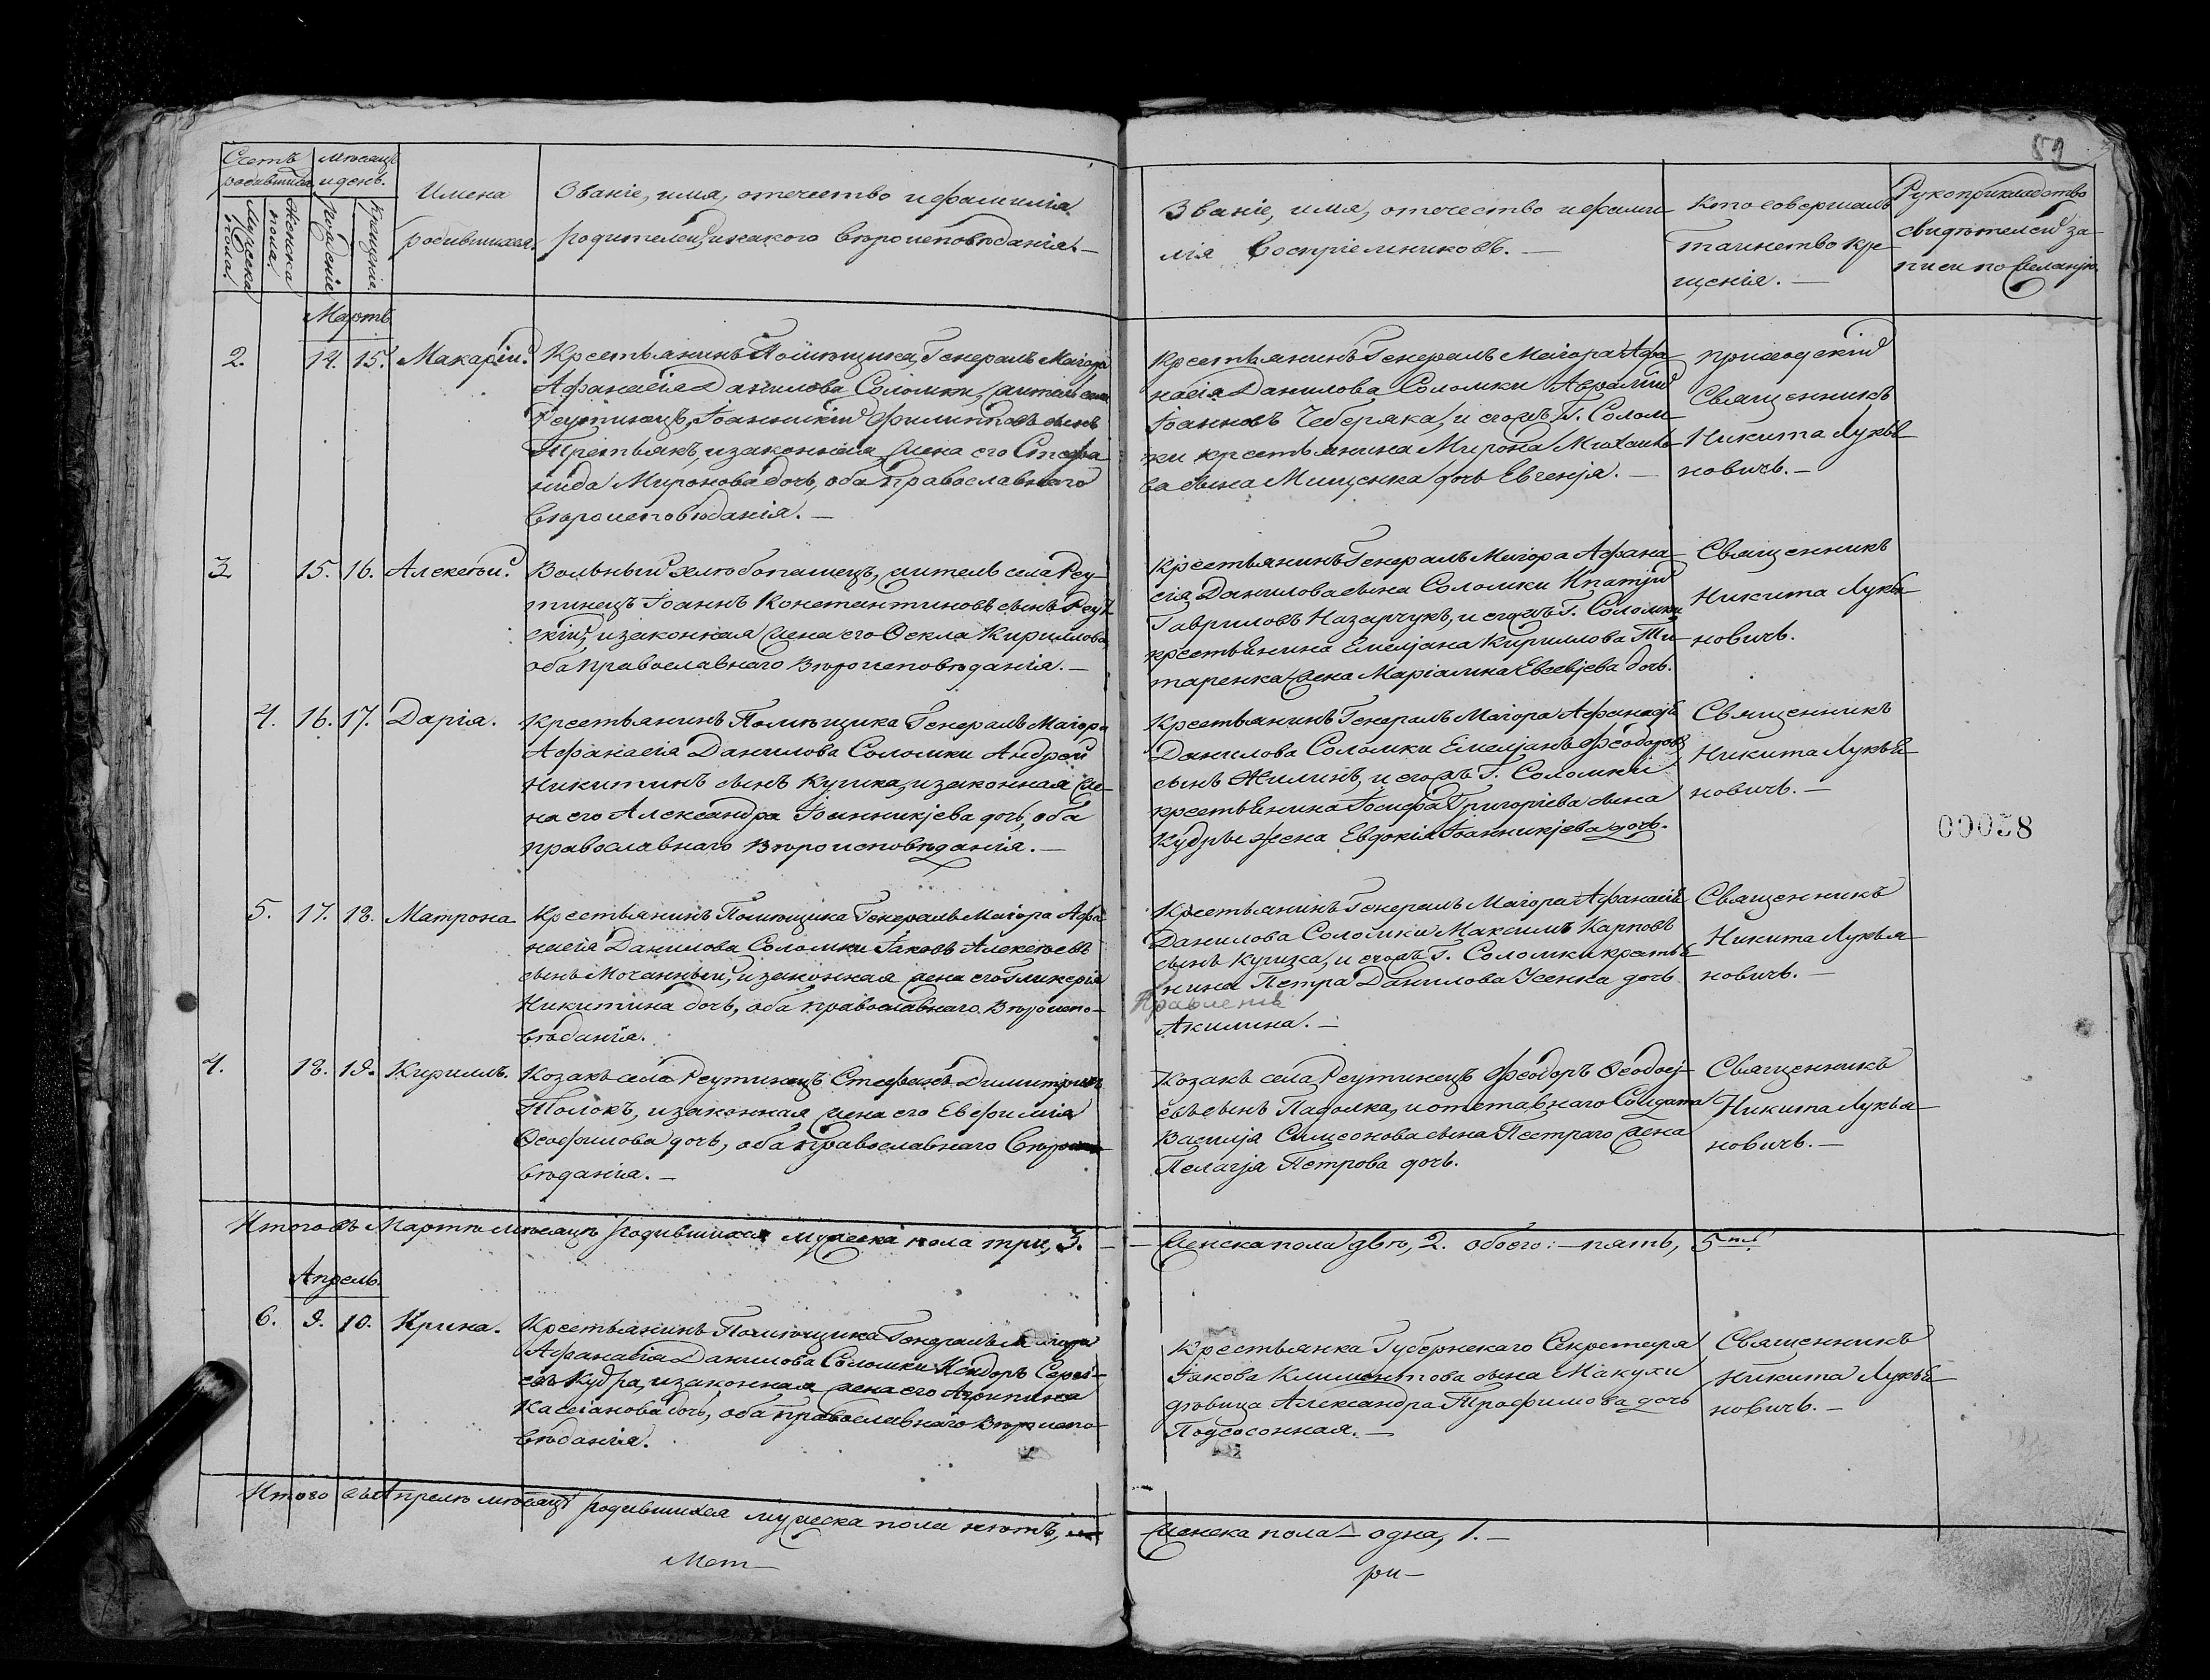 52
Счетъ
родившихся
Мѣсяцъ
и день.
Мужеска
пола.
Женска
пола.
рожденіе
крещеніе.
Имена
родившихся.
Званіе, имя, отечество и фамилія
родителей, и какого вѣроисповѣданія. —
Званіе, имя, отечество и фами-
лія Воспріемниковъ. —
Кто совершалъ
таинство кре-
щенія. —
Рукоприкладство
свидѣтелей за-
писи по желанію.
Мартъ
2. 14. 15. Макарій.
Крестьянинъ Помѣщика, Генералъ Маіора
Афанасія Данилова Соломки, житель села
Реутинецъ, Іоанникій Филипповъ сынъ
Третьякъ, и законная жена его Стефа-
нида Миронова дочь, оба Православнаго
Вѣроисповѣданія. —
Крестьянинъ Генералъ Маіора Афа-
насія Данилова Соломки Аврамій
Іоанновъ Чеберяка, и егожъ Г. Солом-
ки крестьянина Мирона Михаило-
ва сына Мищенка дочь Евгенія. —
приходскій
Священникъ
Никита Лукья-
новичъ. —
3 15. 16. Алексѣй.
Вольный хлѣбопашецъ, житель села Реу-
тинецъ Іоаннъ Константиновъ сынъ Реут-
скій, и законная жена его Ѳекла Кириллова,
оба Православнаго Вѣроисповѣданія. —
Крестьянинъ Генералъ Маіора Афана-
сія Данилова сына Соломки Ипатій
Гавриловъ Назарчукъ, и егожъ Г. Соломки
крестьянина Емеліана Кириллова Ти-
таренка жена Маріамна Евсевіева дочь.
Священникъ
Никита Лукья-
новичъ.
4. 16. 17. Дарія.
Крестьянинъ Помѣщика Генералъ Маіора
Афанасія Данилова Соломки Андрей
Никитинъ сынъ Кугика, и законная же-
на его Александра Іоанникіева дочь, оба
православнаго Вѣроисповѣданія. —
Крестьянинъ Генералъ Маіора Афанасія
Данилова Соломки Емеліанъ Феодоровъ
сынъ Жилинъ, и егожъ Г. Соломки
крестьянина Іосифа Григоріева сына
Кудры жена Евдокія Іоанникіева дочь.
Священникъ
Никита Лукья-
новичъ. —
00038
5. 17. 18. Матрона
Крестьянинъ Помѣщика Генералъ Маіора Афа-
насія Данилова Соломки Іаковъ Алексѣевъ
сынъ Мочанный, и законная жена его Гликерія
Никитина дочь, оба православнаго Вѣроиспо-
вѣданія.
Крестьянинъ Генералъ Маіора Афанасія
Данилова Соломки Максимъ Карповъ
сынъ Кугика, и егожъ Г. Соломки крестья-
нина Петра Данилова Усенка дочь
Акилина. —
Священникъ
Никита Лукья-
новичъ. —
4. 18. 19. Кириллъ.
Козакъ села Реутинецъ Стефанъ Димитріевъ
Толокъ, и законная жена его Евфимія
Ѳеофилова дочь, оба православнаго Вѣроис-
вѣданія. —
Козакъ села Реутинецъ Феодоръ Ѳеодосі-
евъ сынъ Падалка, и отставнаго Солдата
Василія Симеонова сына Пестраго жена
Пелагія Петрова дочь.
Священникъ
Никита Лукья-
новичъ. —
Итого въ Мартѣ мѣсяцѣ родившихся мужеска пола три, 3. — — Женска пола двѣ, 2. обоего: — пять, 5.
Апрель.
6. 9. 10. Ирина.
Крестьянинъ Помѣщика Генералъ Маіора
Афанасія Данилова Соломки Исидоръ Сергі-
евъ Кудра, и законная жена его Агрипина
Касіанова дочь, оба православнаго Вѣроиспо-
вѣданія.
Крестьянка Губернскаго Секретаря
Іакова Климентова сына Макухи
дѣвица Александра Трофимова дочь
Подсосонная. —
Священникъ
Никита Лукья-
новичъ. —
Итого въ Апрелѣ мѣсяцѣ родившихся мужеска пола нѣтъ, — Женска пола — одна, 1. —
Мет- ри-